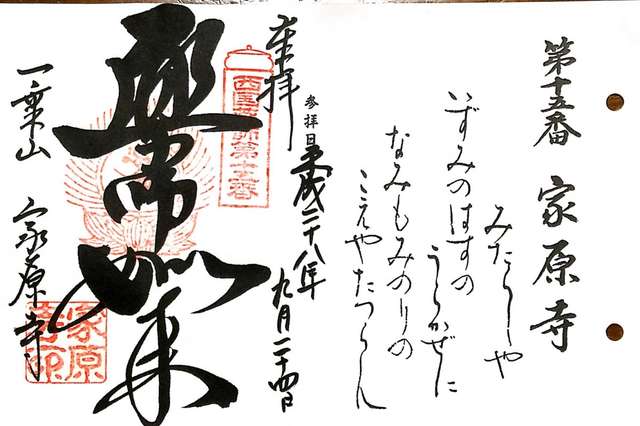 第十五番 家原寺
みたらしや
いずみのはすの
うらかぜに
なみもみのりの
こえやたつらん
参拝日 平成二十八年 九月二十四日
奉拝
西国薬師第十五番
薬師如来
一乗山 家原寺
家原寺印